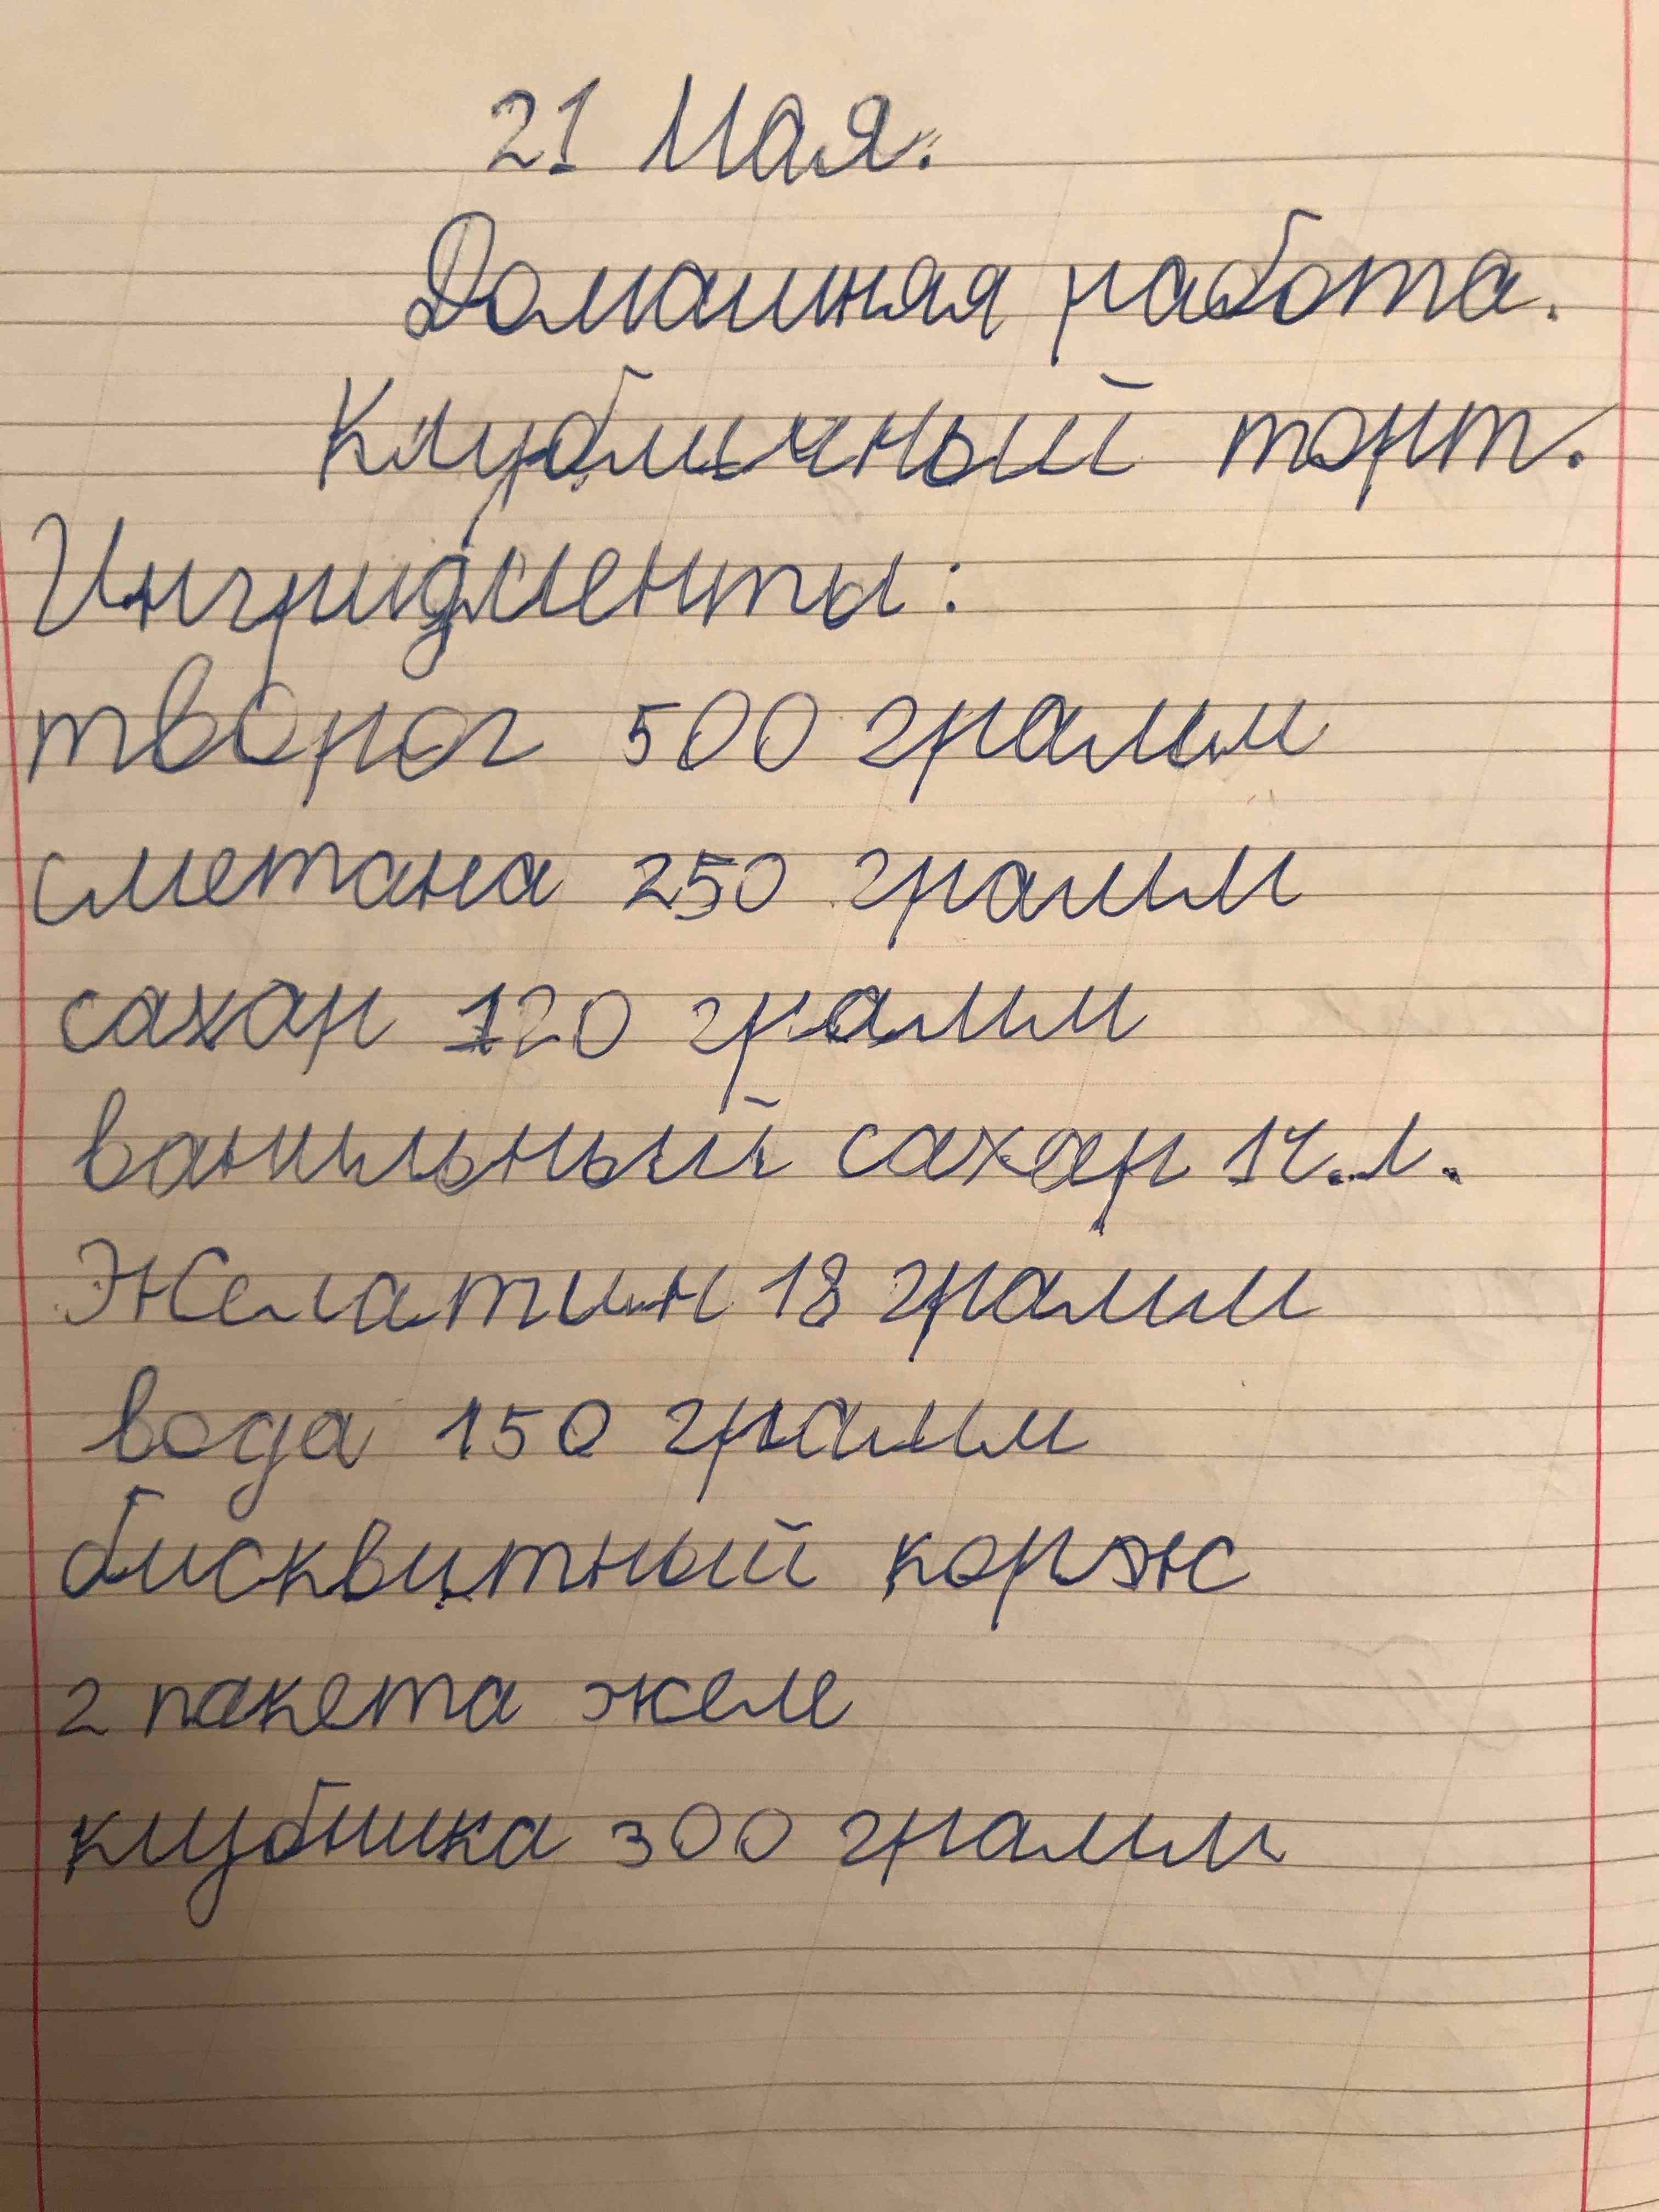 21 Мая.
Домашняя работа.
Клубничный торт.
Ингридиенты:
творог 500 грамм
сметана 250 грамм
сахар 120 грамм
ванильный сахар 1ч.л.
Желатин 18 грамм
вода 150 грамм
бисквитный корж
2 пакета желе
клубника 300 грамм